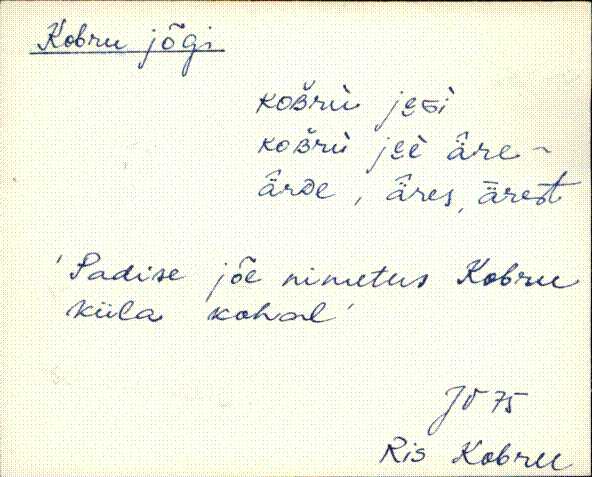 Kobru jõgi
koʙ̆rù je̮ɢì
koʙ̆rù je̮è äre ~
ärᴅe, äres, ärest
'Padise jõe nimetus Kobru
küla kohal'
JV 75
Ris Kobru